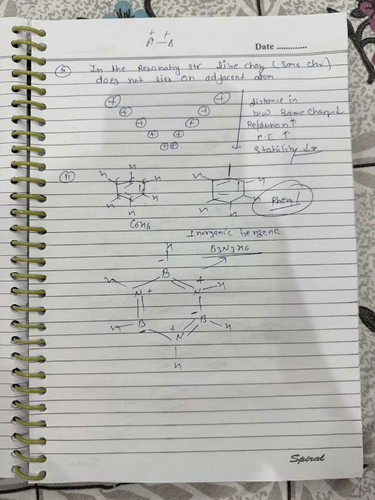 A — B
Date ............
In the Resonating str like chag (same chx)
does not lies on adjacent atom
distance in
b/w same charge ↓
Repulsion ↑
P.E ↑
Stability ↓
C6H6
Phenyl
Inorganic benzene
B3N3H6
H
B
H
N
N
H
H
B
B
H
N
H
Spiral